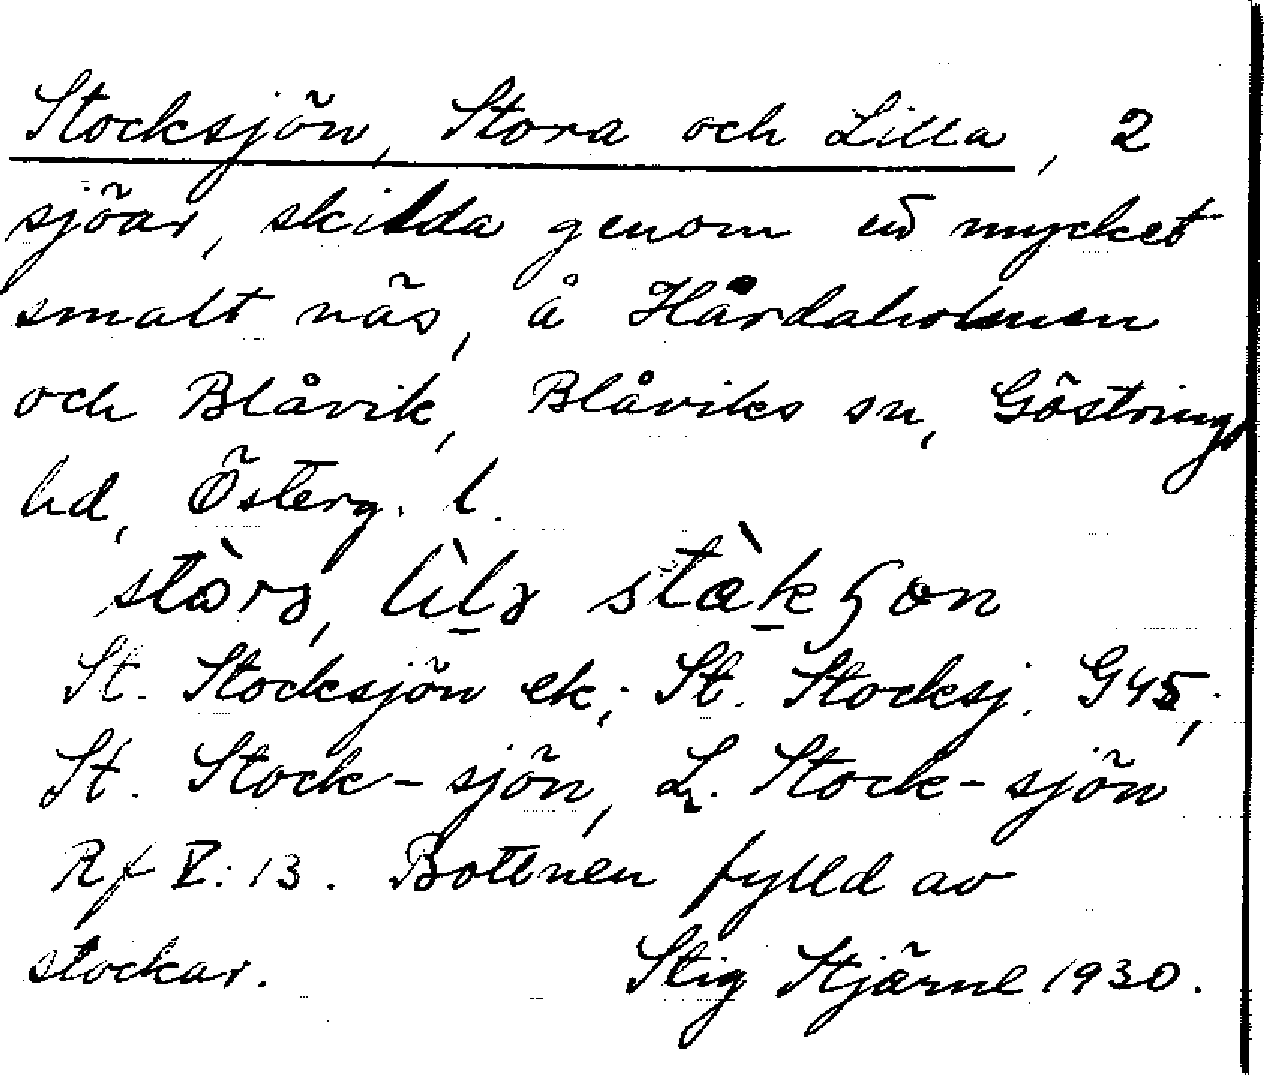 Stocksjön, Stora och Lilla, 2
sjöar, skilda genom ett mycket
smalt näs, å Hårdaholmen
och Blåvik, Blåviks sn, Göstrings
hd, Österg. l.
St. Stocksjön ek; St. Stocksj. G45;
St. Stock-sjön, L. Stock-sjön
Rf V:13. Bottnen fylld av
stockar. Stig Stjärne 1930.